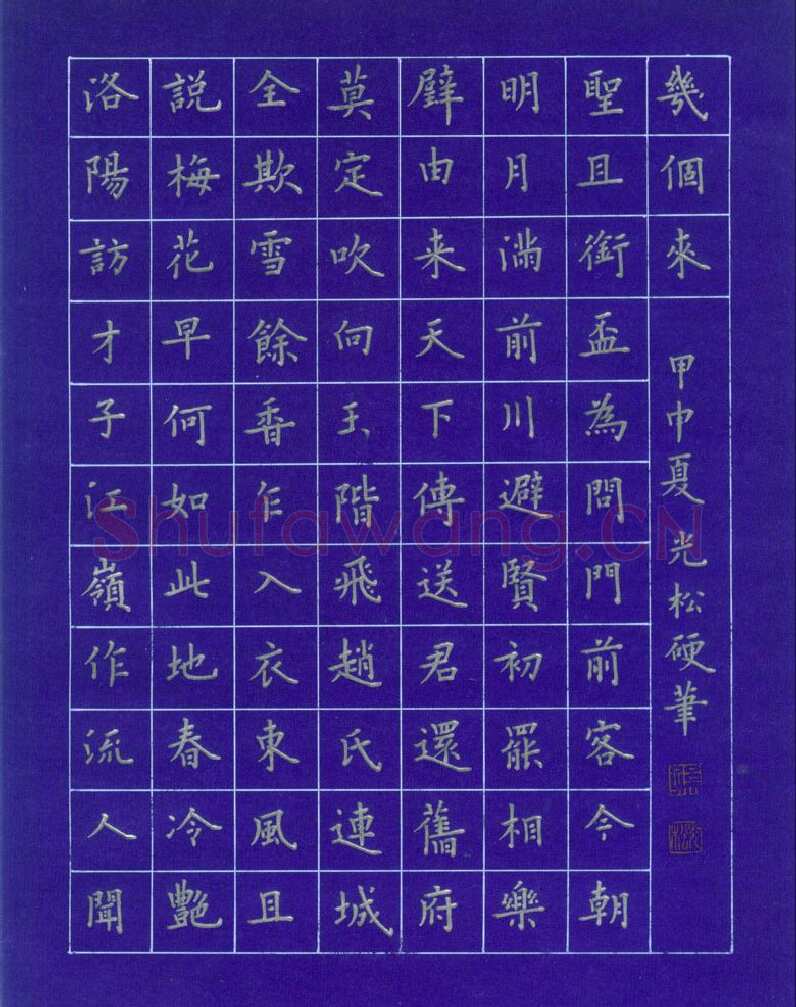 洛陽訪才子江嶺作流人聞
説梅花早何如此地春冷艷
全欺雪餘香乍入衣東風且
莫定吹向玉階飛趙氏連城
璧由来天下傳送君還舊府
明月滿前川避賢初罷相樂
聖且銜盃為問門前客今朝
幾個來
甲申夏光松硬筆
Shufawang.CN